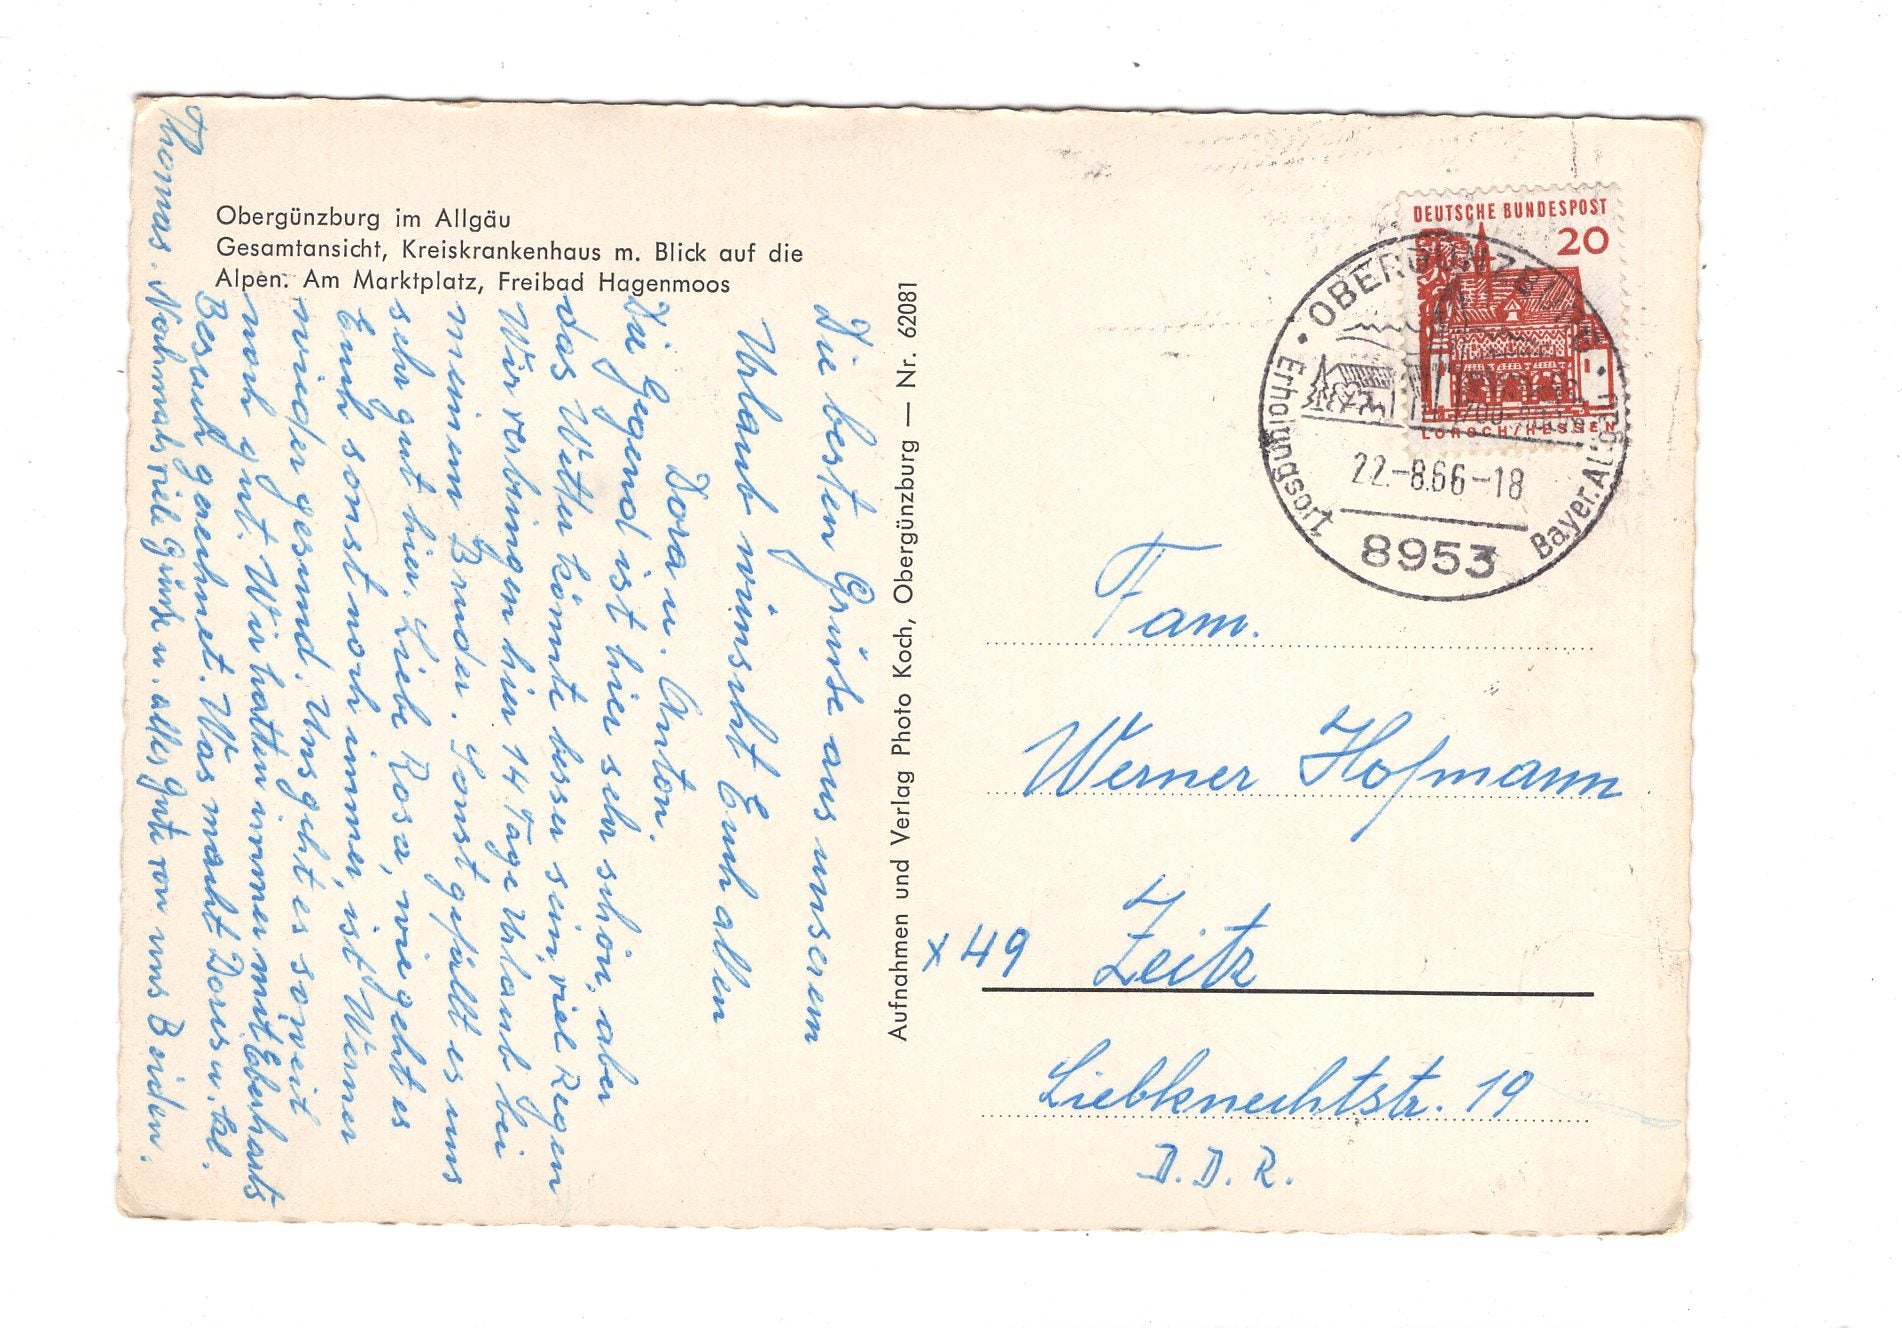 Obergünzburg im Allgäu
Gesamtansicht, Kreiskrankenhaus m. Blick auf die
Alpen. Am Marktplatz, Freibad Hagenmoos
Die besten Grüße aus unserem
Urlaub wünscht Euch allen
Dora u. Anton.
Die Gegend ist hier sehr schön, aber
das Wetter könnte besser sein, viel Regen
Wir verbringen hier 14 Tage Urlaub bei
meinem Bruder. Sonst gefällt es uns
sehr gut hier. Liebe Rosa, wie geht es
Euch sonst noch immer, ist Werner
wieder gesund. Uns geht es soweit
noch gut. Wir hatten immer mit Eberharts
Besuch gerechnet. Was macht Doris u. kl.
Thomas. Nochmals viele Grüße u. alles Gute von uns Beiden.
Aufnahmen und Verlag Photo Koch, Obergünzburg — Nr. 62081
DEUTSCHE BUNDESPOST
20
LORSCH/HESSEN
OBERGÜNZBURG
22.-8.66-18
8953
Erholungsort
Bayer. Allgäu
Fam.
Werner Hofmann
x 49 Zeitz
Liebknechtstr. 19
D.D.R.